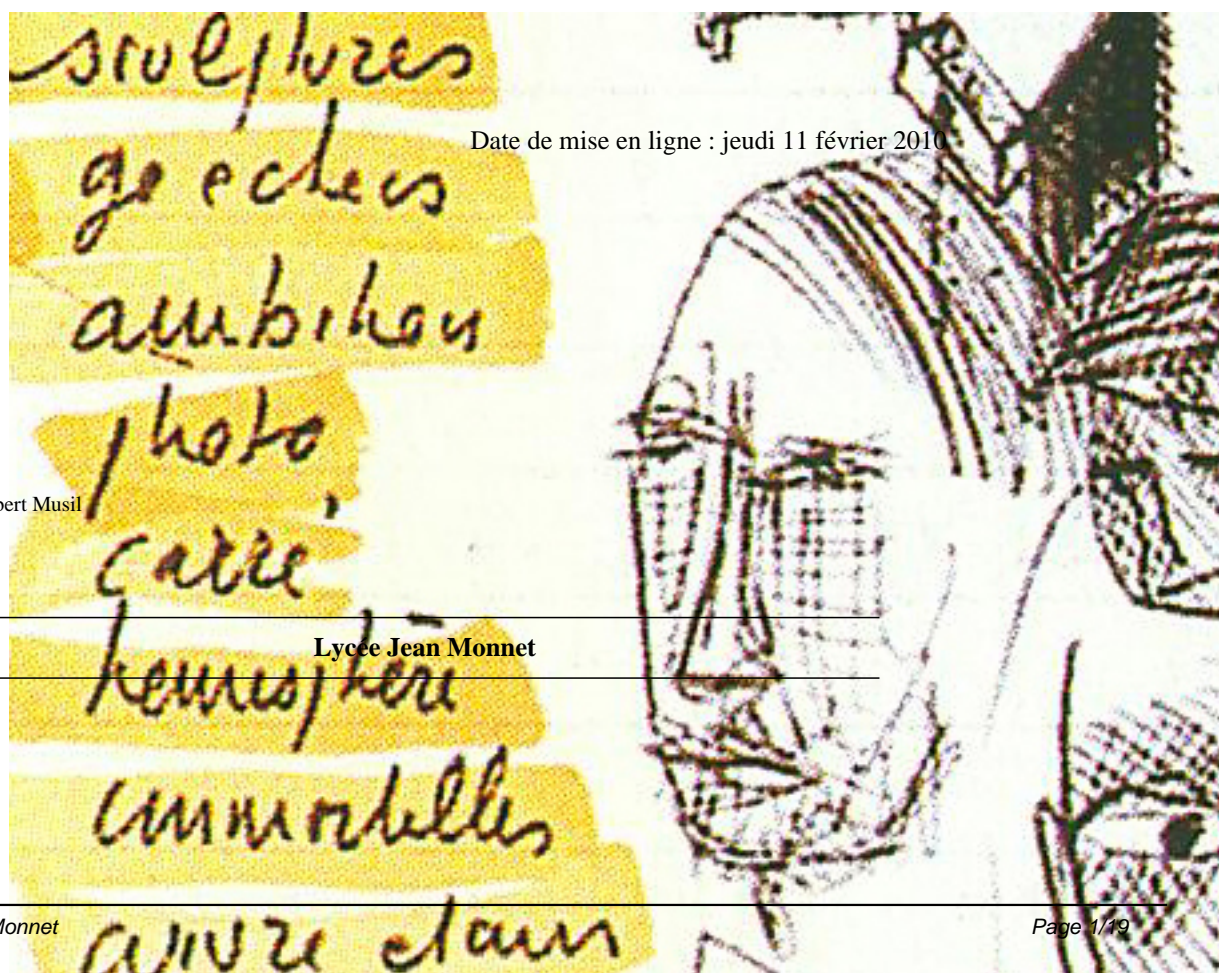 sculptures
Date de mise en ligne : jeudi 11 février 2010
echecs
ambition
photo
bert Musil
carré
Lycée Jean Monnet
hemisphère
immortelles
Monnet
Page 1/19